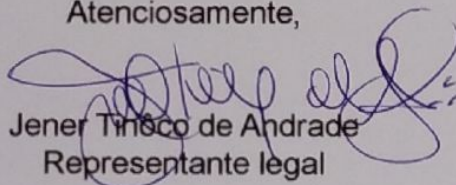 Atenciosamente,
Jener Tinôco de Andrade
Representante legal